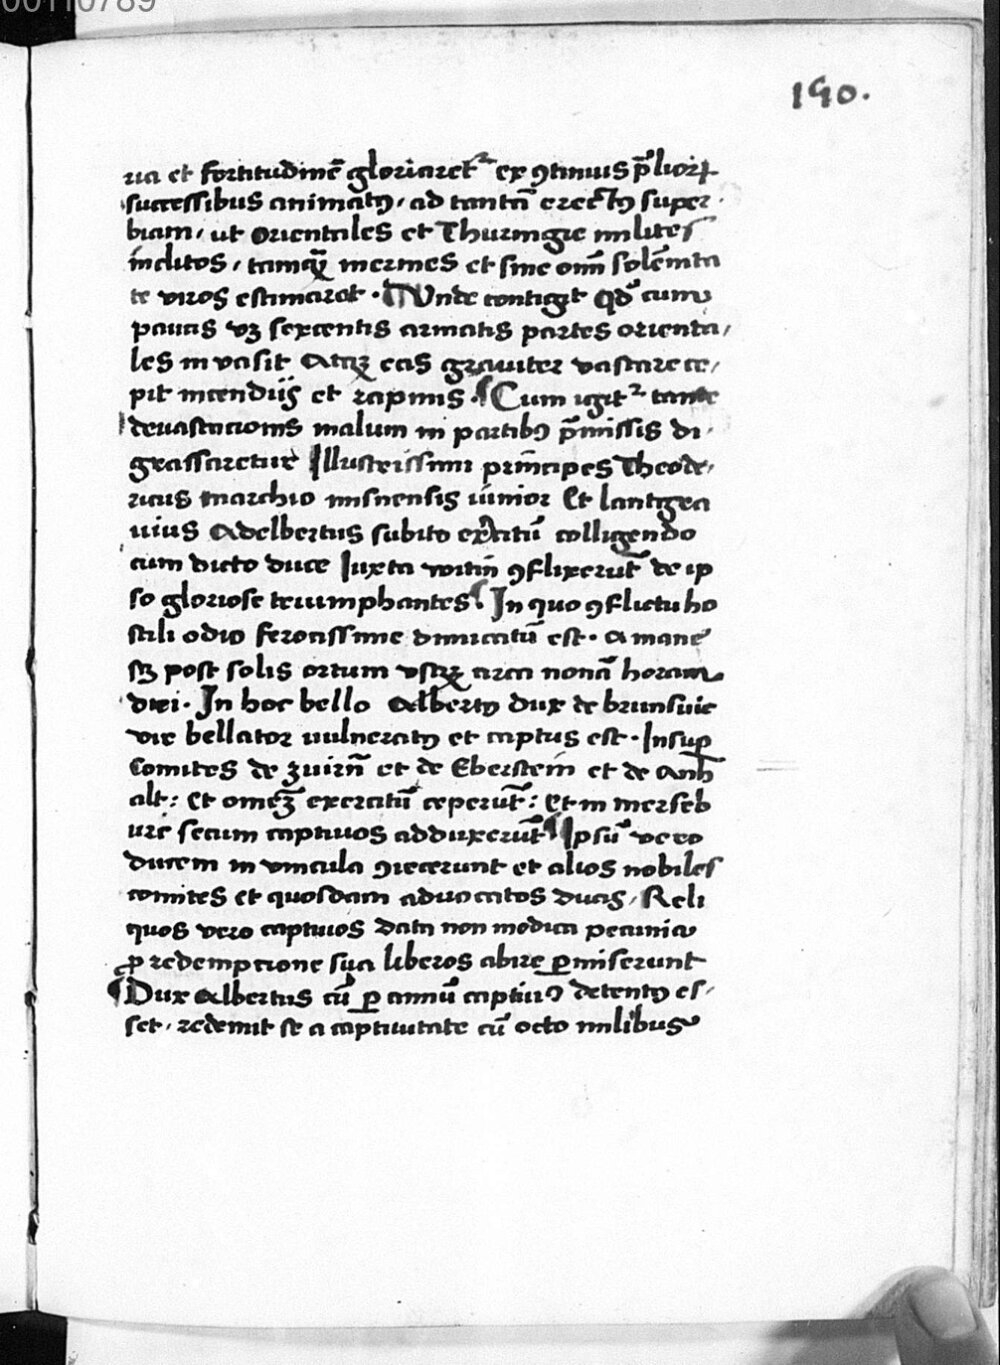 00110789
190.
ria et fortitudinē gloriaret᷑ ex ꝯtinuis p̄lioꝝ
successibus animatꝰ, ad tantā erectꝰ super-
biam, ut orientales et Thuringie milites
inclitos, tamqꝫ inermes et sine om̄i solēnita
te viros estimaret. ¶ Unde contigit qd̓ cum
paucis vꝫ sexcentis armatis partes orienta/
les invasit Atqꝫ eas graviter vastare ce/
pit incendiis et rapinis. ¶ Cum igit᷑ tante
devastacionis malum in partibꝰ p̄missis di-
grassaretur Illustrissimi principes Theode/
ricus marchio misnensis iunior Et lantgra
uius Adelbertus subito ex̓citū colligendo
cum dicto duce Iuxta witin̄ ꝯflixerūt de ip
so gloriose triumphantes ¶ In quo ꝯflictu ho
stili odio ferocissime dimicatū est. A mane
sꝫ post solis ortum usqꝫ circa nonā horam
diei. In hoc bello Albertꝰ dux de brunsuic
vir bellator vulneratꝰ et captus est. Insuꝑ
Comites de zuirn̄ et de Eberstein et de Anh
alt: Et omēꝫ exercitū ceperūt: Et in merseb
urc secum captivos adduxerūt ¶ Ipsū vero
ducem in vincula ꝯiecerunt et alios nobiles
comites et quosdam advocatos ducis, Reli
quos vero captivos data non modica pecunia
ꝓ redempcione sua liberos abire ꝑmiserunt
¶ Dux Albertus cū ꝑ annū captiuꝰ detentꝰ es/
set, redemit se a captivitate cū octo milibus